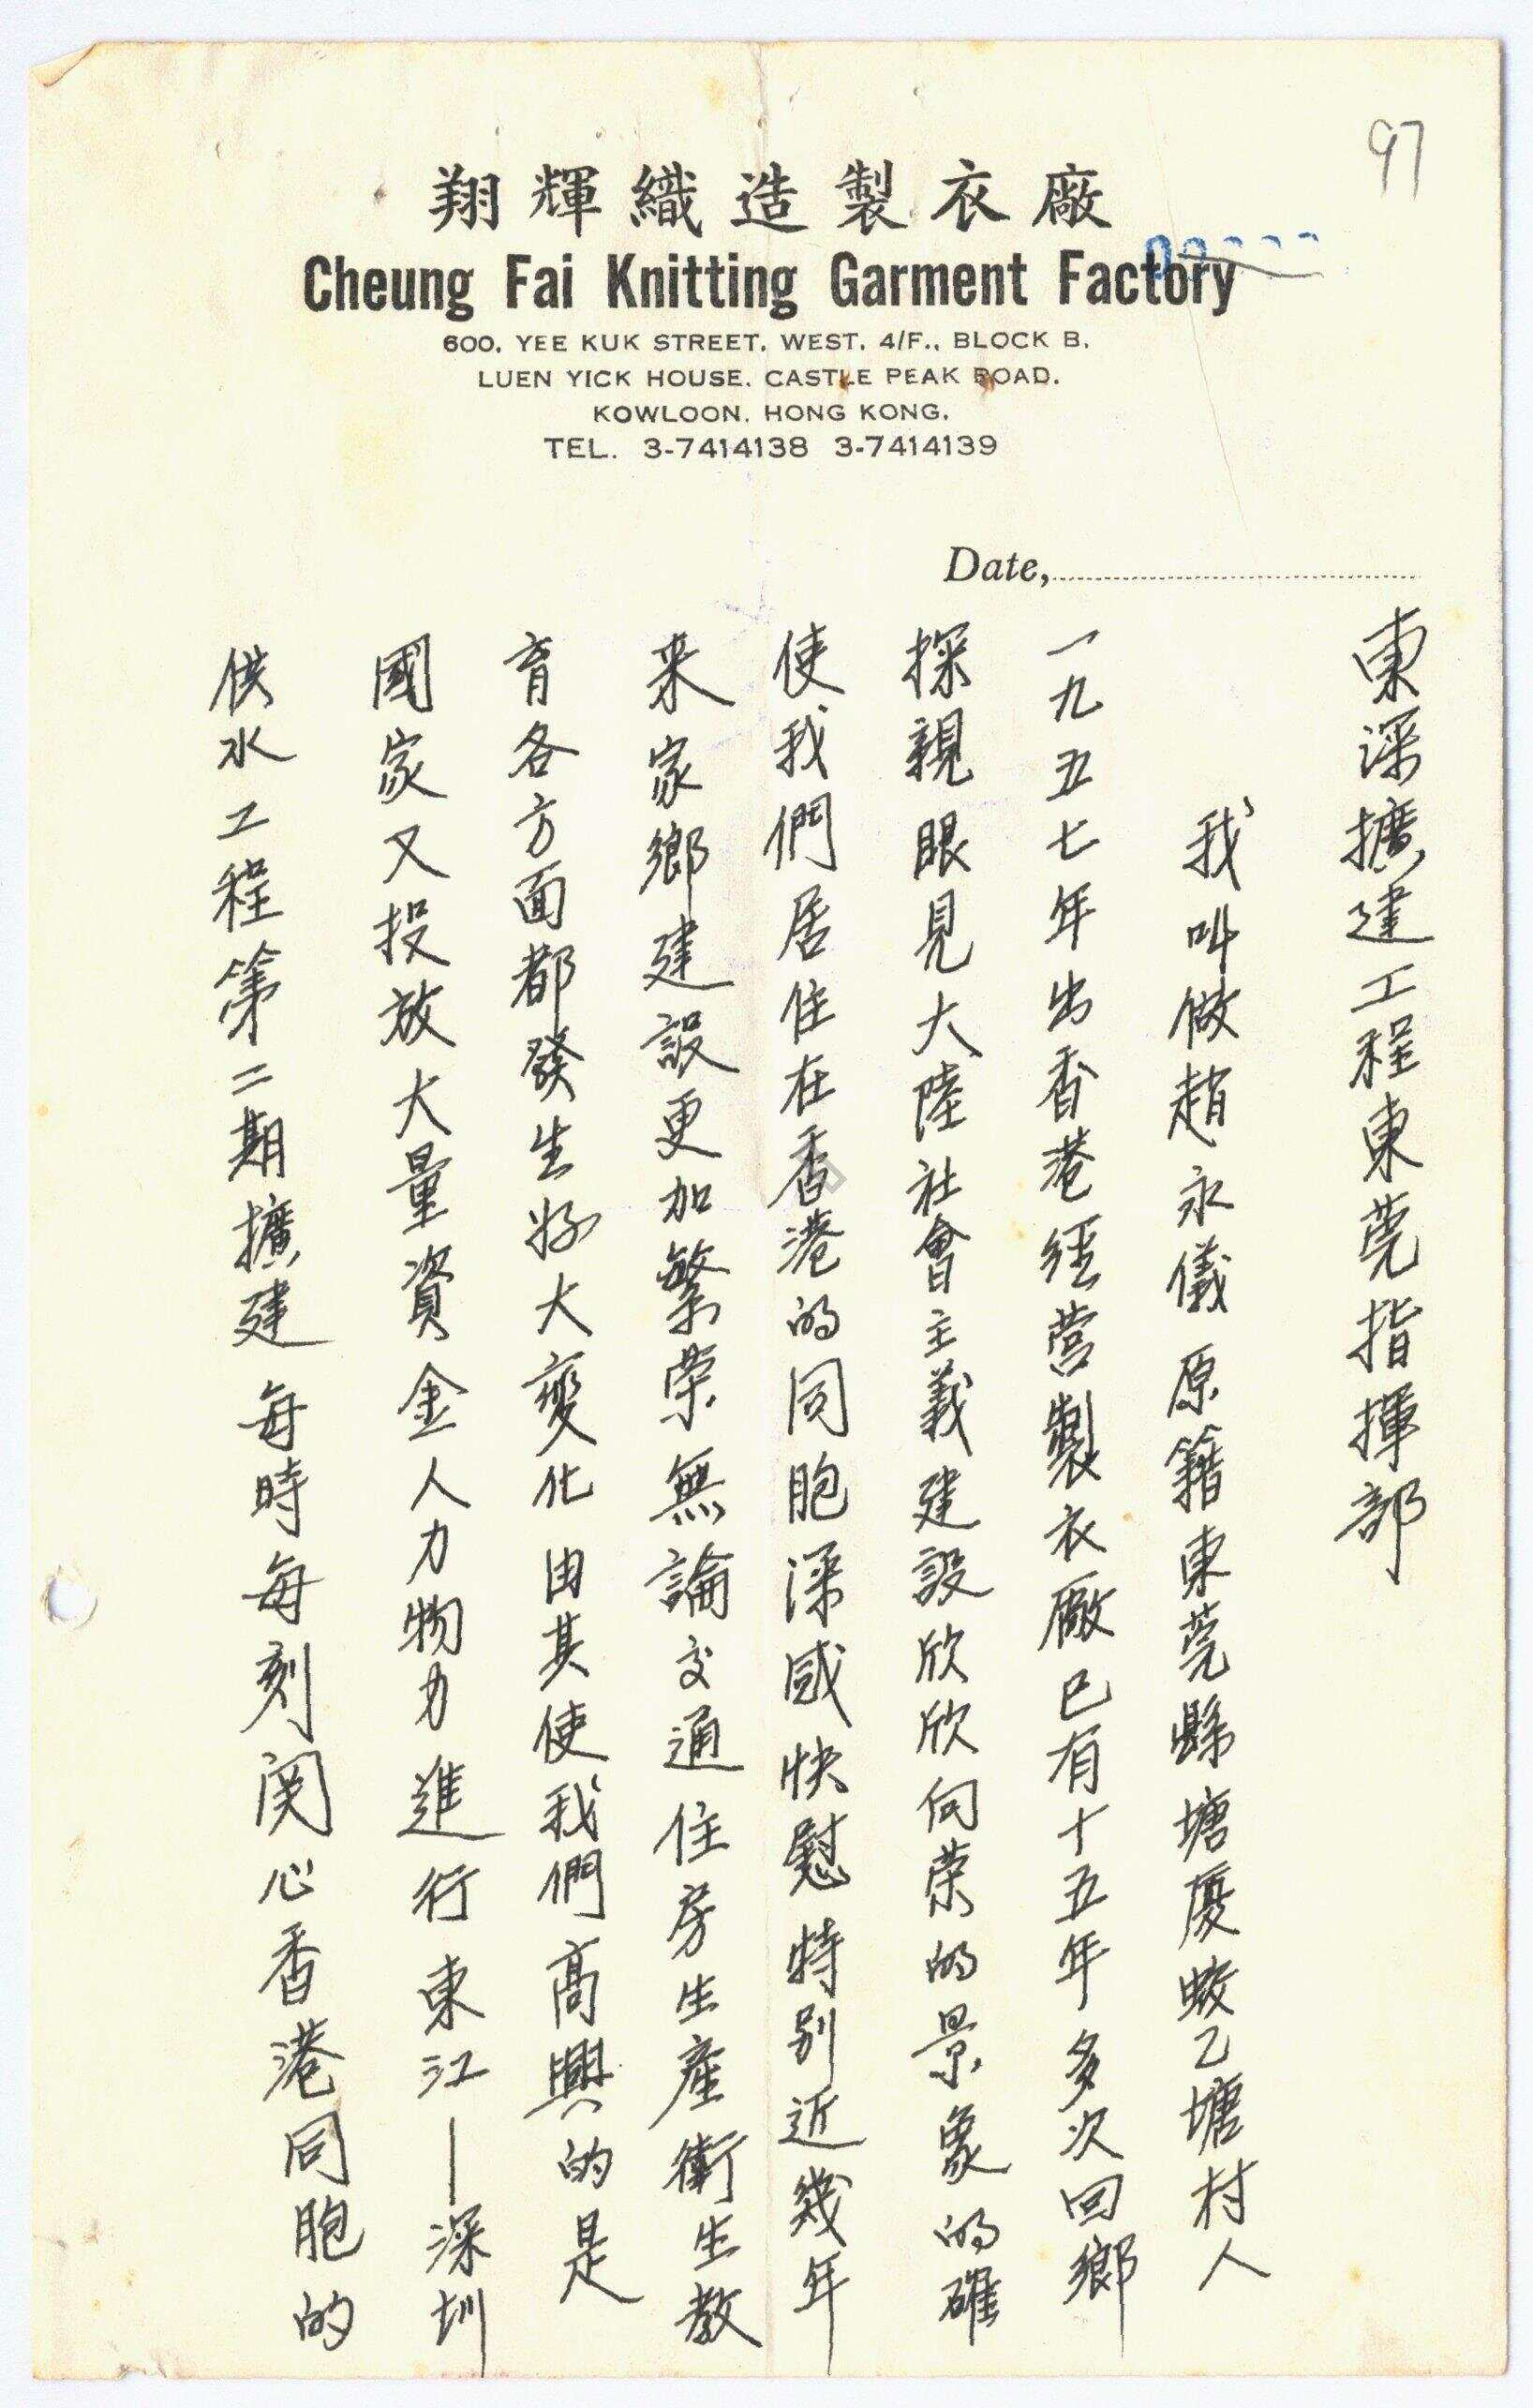 97
翔輝織造製衣廠
Cheung Fai Knitting Garment Factory
600, YEE KUK STREET, WEST, 4/F., BLOCK B,
LUEN YICK HOUSE, CASTLE PEAK ROAD,
KOWLOON, HONG KONG.
TEL. 3-7414138 3-7414139
Date,
東深擴建工程東莞指揮部
我叫做趙永儀原籍東莞縣塘廈蛟乙塘村人
一九五七年出香港經营製衣廠已有十五年多次回鄉
探親眼見大陸社會主義建設欣欣向荣的景象的確
使我們居住在香港的同胞深感快慰特别近幾年
来家鄉建設更加繁荣無論交通住房生產衛生教
育各方面都發生好大變化由其使我們高興的是
國家又投放大量資金人力物力進行東江—深圳
供水工程第二期擴建每時每刻関心香港同胞的